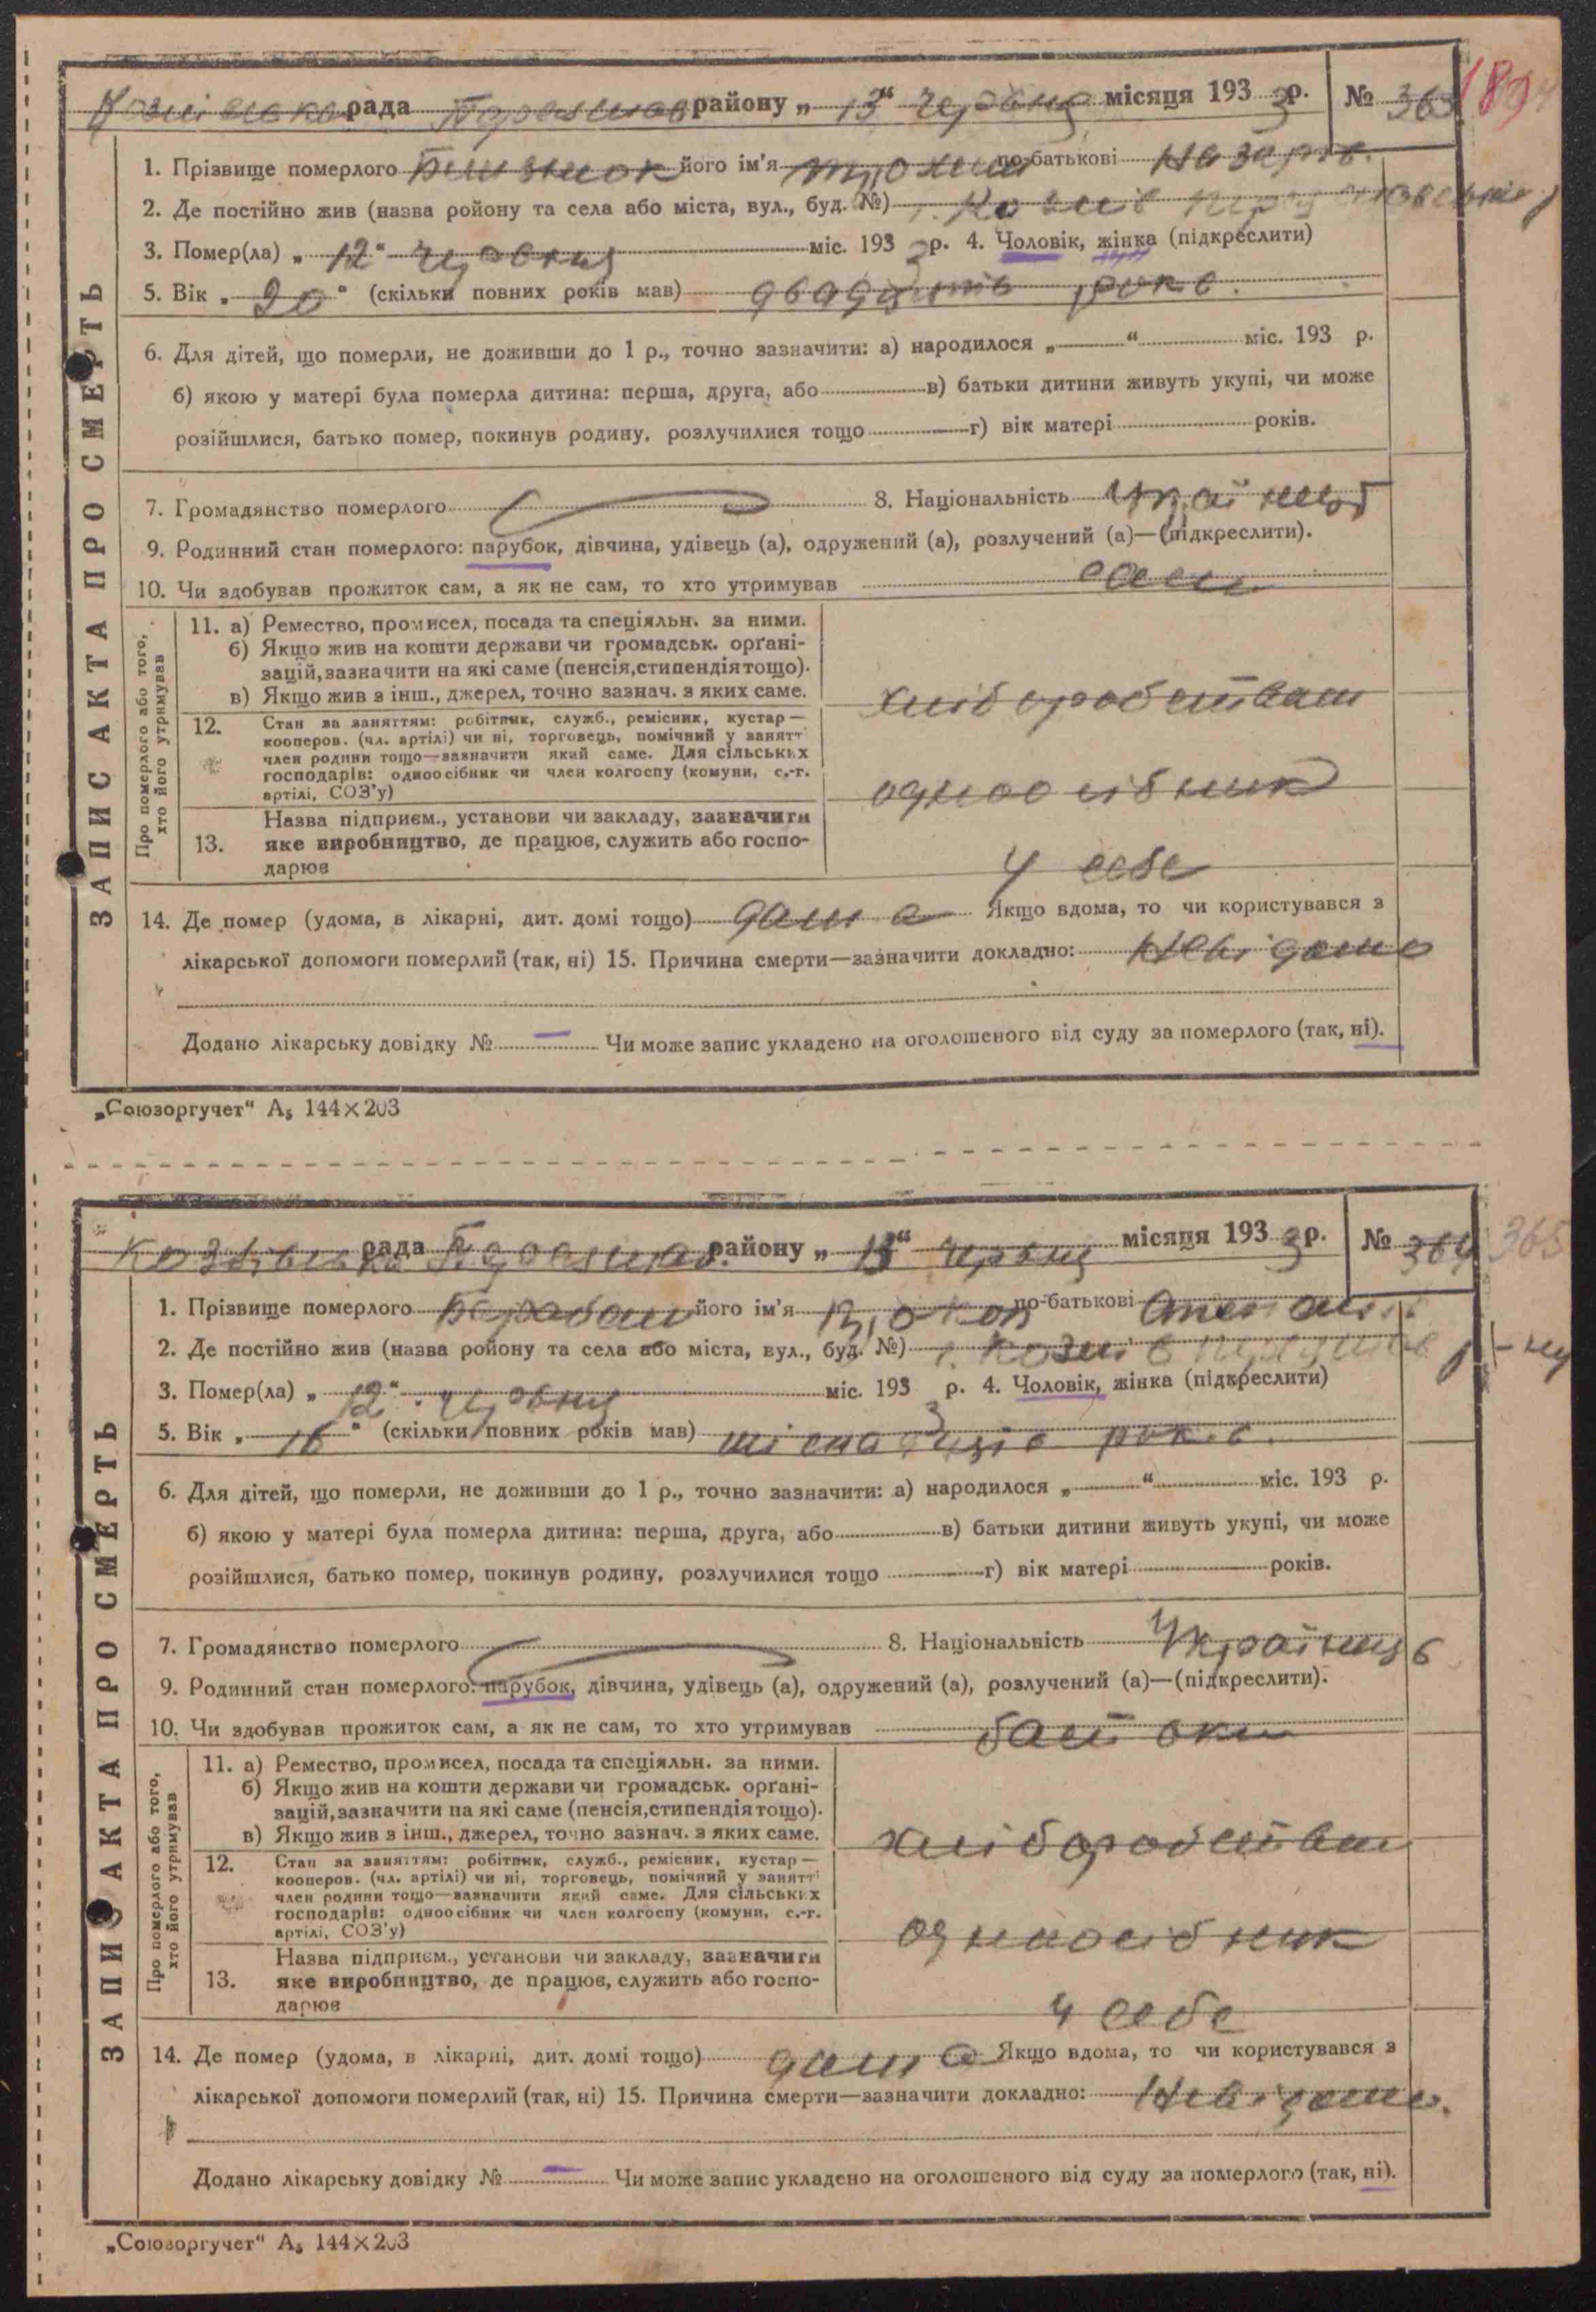 рада району „ 13 “ червня місяця 193 3 р. № 363
ЗАПИС АКТА ПРО СМЕРТЬ
1. Прізвище померлого Близнюк його ім'я Трохим по-батькові Назаров.
2. Де постійно жив (назва ройону та села або міста, вул., буд. №) с. Козіїв
3. Помер(ла) „ 12 “ червня міс. 193 3 р. 4. Чоловік, жінка (підкреслити)
5. Вік „ 20 “ (скільки повних років мав) двадцять рокв.
6. Для дітей, що померли, не доживши до 1 р., точно зазначити: а) народилося „ “ міс. 193 р.
б) якою у матері була померла дитина: перша, друга, або в) батьки дитини живуть укупі, чи може
розійшлися, батько помер, покинув родину, розлучилися тощо г) вік матері років.
7. Громадянство померлого 8. Національність
9. Родинний стан померлого: парубок, дівчина, удівець (а), одружений (а), розлучений (а)—(підкреслити).
10. Чи здобував прожиток сам, а як не сам, то хто утримував сам
Про померлого або того, хто його утримував
11. а) Ремество, промисел, посада та спеціяльн. за ними.
б) Якщо жив на кошти держави чи громадськ. орґані-
зацій, зазначити на які саме (пенсія, стипендія тощо).
в) Якщо жив з інш., джерел, точно зазнач. з яких саме. хліборобством
12. Стан за заняттям: робітник, служб., ремісник, кустар —
кооперов. (чл. артілі) чи ні, торговець, помічний у занятт
член родини тощо—зазначити який саме. Для сільських
господарів: одноосібник чи член колгоспу (комуни, с.-г. одноосібник
артілі, СОЗ'у)
Назва підприєм., установи чи закладу, зазначити
13. яке виробництво, де працює, служить або госпо-
дарює у себе
14. Де помер (удома, в лікарні, дит. домі тощо) дома Якщо вдома, то чи користувався з
лікарської допомоги померлий (так, ні) 15. Причина смерти—зазначити докладно: Невідомо
Додано лікарську довідку № — Чи може запис укладено на оголошеного від суду за померлого (так, ні).
„Союзоргучет“ А5 144×203
рада району „ 13 “ червня місяця 193 3 р. № 364 365
ЗАПИС АКТА ПРО СМЕРТЬ
1. Прізвище померлого Барабаш його ім'я по-батькові Степанов.
2. Де постійно жив (назва ройону та села або міста, вул., буд. №) с. Козіїв
3. Помер(ла) „ 12 “ червня міс. 193 3 р. 4. Чоловік, жінка (підкреслити)
5. Вік „ 16 “ (скільки повних років мав) рокв.
6. Для дітей, що померли, не доживши до 1 р., точно зазначити: а) народилося „ “ міс. 193 р.
б) якою у матері була померла дитина: перша, друга, або в) батьки дитини живуть укупі, чи може
розійшлися, батько помер, покинув родину, розлучилися тощо г) вік матері років.
7. Громадянство померлого 8. Національність Українець
9. Родинний стан померлого: парубок, дівчина, удівець (а), одружений (а), розлучений (а)—(підкреслити).
10. Чи здобував прожиток сам, а як не сам, то хто утримував батьки
Про померлого або того, хто його утримував
11. а) Ремество, промисел, посада та спеціяльн. за ними.
б) Якщо жив на кошти держави чи громадськ. орґані-
зацій, зазначити на які саме (пенсія, стипендія тощо).
в) Якщо жив з інш., джерел, точно зазнач. з яких саме. хліборобством
12. Стан за заняттям: робітник, служб., ремісник, кустар —
кооперов. (чл. артілі) чи ні, торговець, помічний у занятт
член родини тощо—зазначити який саме. Для сільських
господарів: одноосібник чи член колгоспу (комуни, с.-г. одноосібник
артілі, СОЗ'у)
Назва підприєм., установи чи закладу, зазначити
13. яке виробництво, де працює, служить або госпо-
дарює у себе
14. Де помер (удома, в лікарні, дит. домі тощо) дома Якщо вдома, то чи користувався з
лікарської допомоги померлий (так, ні) 15. Причина смерти—зазначити докладно: Невідомо.
Додано лікарську довідку № — Чи може запис укладено на оголошеного від суду за померлого (так, ні).
„Союзоргучет“ А5 144×203